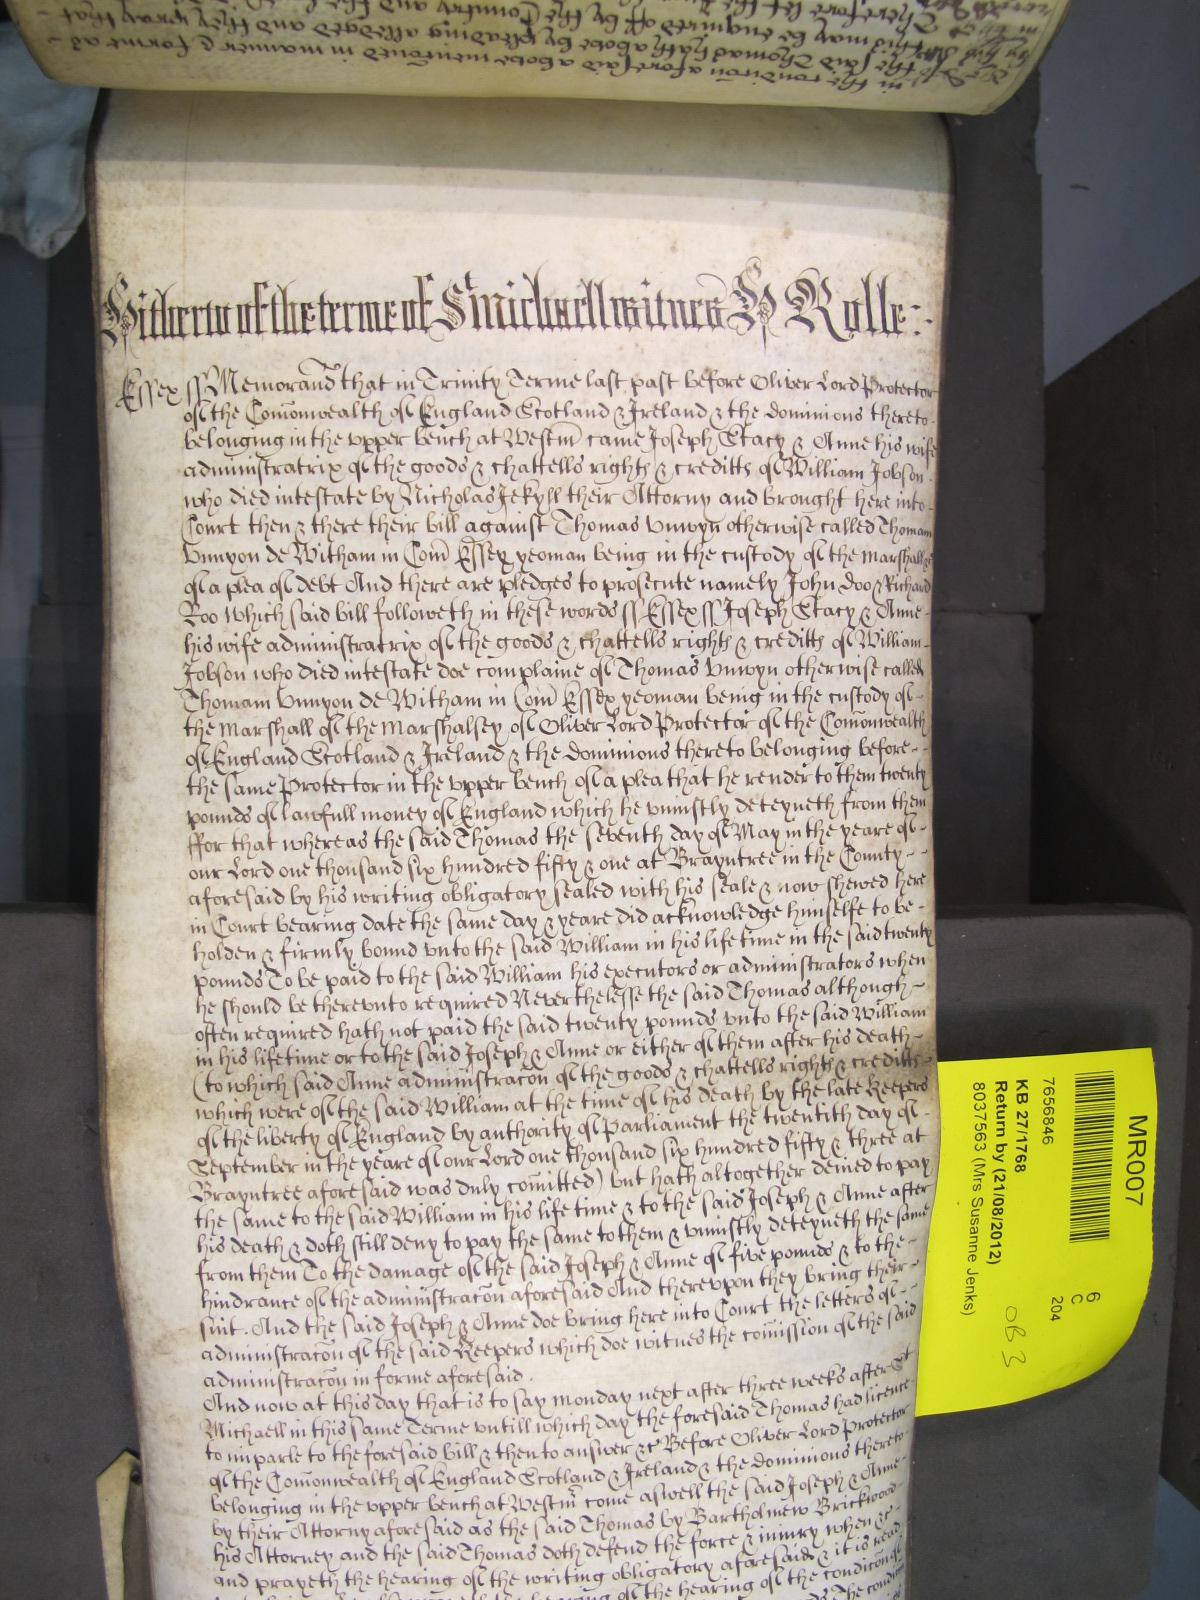 in the condicõn aforesaid above mencioned in manner & forme as
the said Thomas hath above by pleading alledged
this may be enquired of by the Country and the
Hitherto of the terme of St Michaell witnes H Rolle :-
Essex ss Memorand that in Trinity Terme last past before Oliver Lord Protector
of the Com̃onwealth of England Scotland & Ireland & the dominions thereto
belonging in the vpper bench at Westm̃ came Joseph Stacy & Anne his wife
administratrix of the goods & chattells rights & creditts of William Jobson
who died intestate by Nicholas Jekyll their Attorny and brought here into
Court then & there their bill against Thomas Vnwyn otherwise called Thomam
Vnnyon de Witham in Com̃ Essex yeoman being in the custody of the Marshall &c
of a plea of debt And there are pledges to prosecute namely John Doo & Richard
Roo which said bill followeth in these words ss Essex ss Joseph Stacy & Anne
his wife administratrix of the goods & chattells rights & creditts of William
Jobson who died intestate doe complaine of Thomas Vnwyn otherwise called
Thomam Vnnyon de Witham in Com̃ Essex yeoman being in the custody of
the Marshall of the Marshalsey of Oliver Lord Protector of the Com̃onwealth
of England Scotland & Ireland & the dominions thereto belonging before
the same Protector in the vpper bench of a plea that he render to them twenty
pounds of lawfull money of England which he vniustly deteyneth from them
ffor that whereas the said Thomas the seventh day of May in the yeare of
our Lord one thousand six hundred fifty & one at Brayntree in the County
aforesaid by his writing obligatory sealed with his seale & now shewed here
in Court bearing date the same day & yeare did acknowledge himselfe to be
holden & firmly bound vnto the said William in his life time in the said twenty
pounds To be paid to the said William his executors or administrators when
he should be therevnto required Neverthelesse the said Thomas although
often required hath not paid the said twenty pounds vnto the said William
in his lifetime or to the said Joseph & Anne or either of them after his death
(to which said Anne administracõn of the goods & chattells rights & creditts
which were of the said William at the time of his death by the late Keepers
of the liberty of England by authority of Parliament the twentith day of
September in the yeare of our Lord one thousand six hundred fifty & three at
Brayntree aforesaid was duly com̃itted) but hath altogether denied to pay
the same to the said William in his life time & to the said Joseph & Anne after
his death & doth still deny to pay the same to them & vniustly deteyneth the same
from them To the damage of the said Joseph & Anne of five pounds & to the
hindrance of the administracõn aforesaid And therevpon they bring their
suit. And the said Joseph & Anne doe bring here into Court the letters of
administracõn of the said Keepers which doe witnes the com̃ission of the said
administracõn in forme aforesaid.
And now at this day that is to say monday next after three weeks after St
Michaell in this same Terme vntill which day the foresaid Thomas had licence
to imparle to the foresaid bill & then to answer &c Before Oliver Lord Protector
of the Com̃onwealth of England Scotland & Ireland & the dominions thereto
belonging in the vpper bench at Westm̃ come aswell the said Joseph & Anne
by their Attorny aforesaid as the said Thomas by Bartholmew Brickwood
his Attorney and the said Thomas doth defend the force & iniury when &c
and prayeth the hearing of the writing obligatory aforesaid & it is read
of the hearing of the condicõn of
MR007
6
C
204
7656846
KB 27/1768
Return by (21/08/2012)
8037563 (Mrs Susanne Jenks)
OB 3